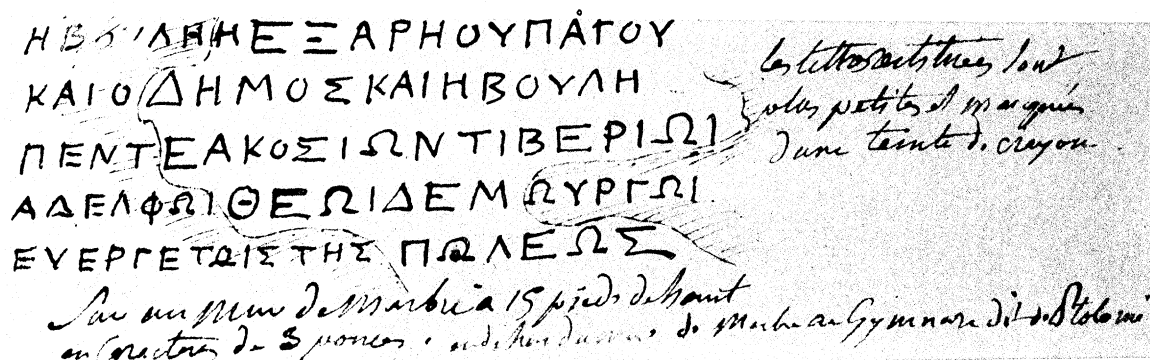 Η ΒΟΥΛΗ Η ΕΞ ΑΡΗΟΥ ΠΑΓΟΥ
ΚΑΙ Ο ΔΗΜΟΣ ΚΑΙ Η ΒΟΥΛΗ
ΠΕΝΤΕΑΚΟΣΙΩΝ ΤΙΒΕΡΙΩΙ
ΑΔΕΛΦΩΙ ΘΕΩΙ ΔΕΜΩΥΡΓΩΙ
ΕΥΕΡΓΕΤΩΙΣ ΤΗΣ ΠΩΛΕΩΣ
les lettres restituees sont
plus petites et marquées
d'une teinte de crayon
Sur un mur de Marbre a 15 pieds de haut
en caracteres de 3 pouces de Marbre au Gymnase dit de Ptolomé